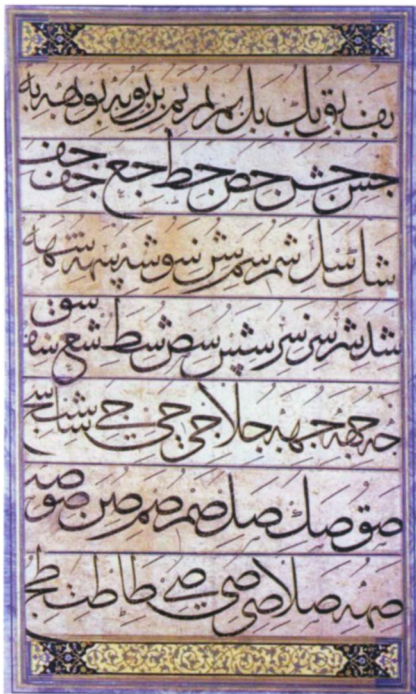 بف بق بك بل بم لم لم بن بو به بو بهه به
جس جش جص جط جع جف جف
شك شل شم سم ش سو شه سه سهه
شد شر سر سز سس سص سط شع سف سق
جه جهه جهه جلا جي جي جے شا شب سج
صق صك صل صم ضم صن صو صه
صهه صلا صي صي صے طا طب طج